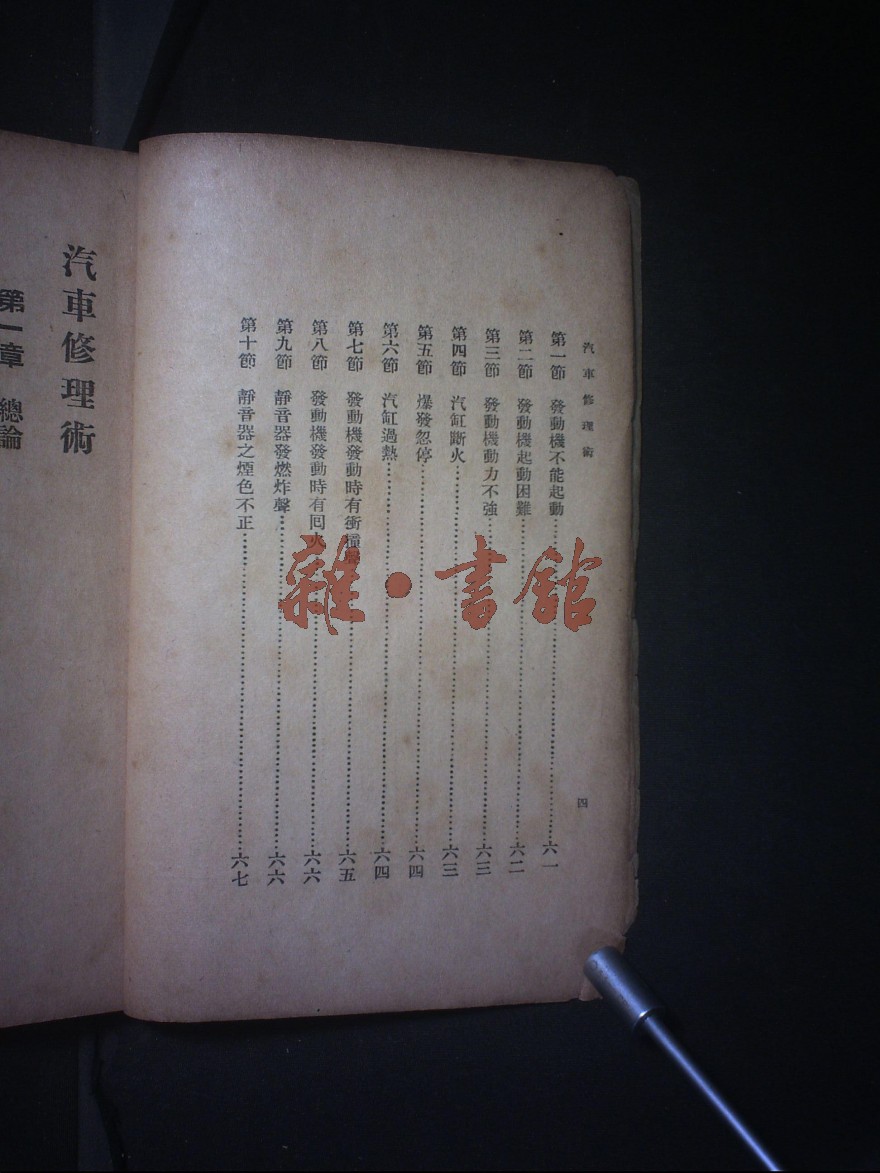 汽車修理術
第一節　發動機不能起動……六一
第二節　發動機起動困難……六二
第三節　發動機動力不強……六三
第四節　汽缸斷火……六三
第五節　爆發忽停……六四
第六節　汽缸過熱……六四
第七節　發動機發動時有衝撞聲……六五
第八節　發動機發動時有回火……六六
第九節　靜音器發燃炸聲……六六
第十節　靜音器之煙色不正……六七
四
雜·書館
汽車修理術
第一章　總論